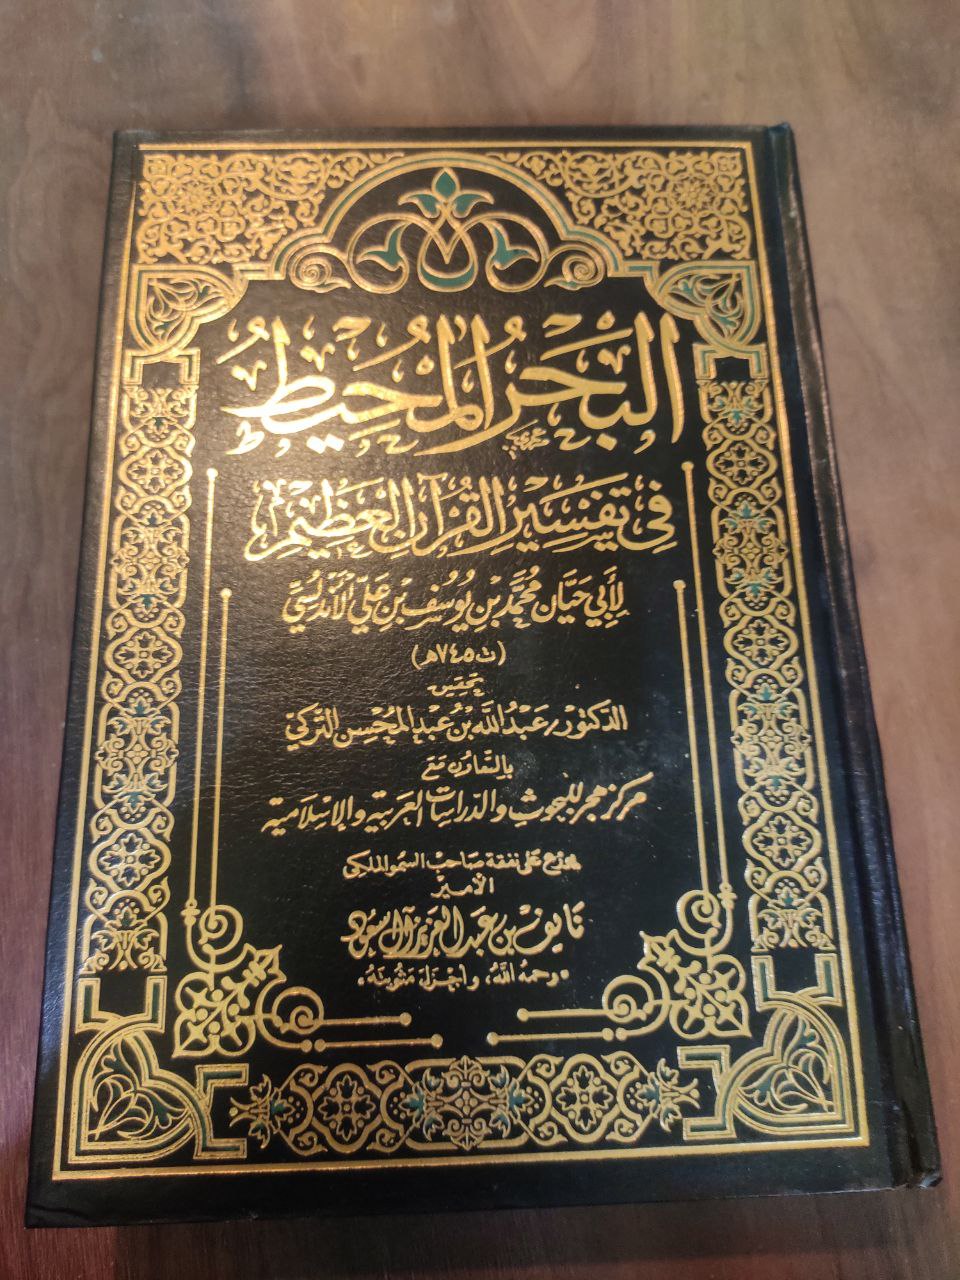 البَحْرُ المُحِيطُ
في تَفْسِيرِ القُرْآنِ العَظِيمِ
لِأَبِي حَيَّان مُحَمَّد بْنِ يُوسُف بْنِ عَلِيّ الأَنْدَلُسِيّ
(ت ٧٤٥هـ)
تحقيق
الدكتور/ عَبْدُ اللَّه بْنُ عَبْدِ المُحْسِن التُّركي
بالتعاون مع
مركز هجر للبحوث والدراسات العربية والإسلامية
يوزع على نفقة صاحب السمو الملكي
الأمير
نايف بن عبد العزيز آل سعود
«رحمهُ اللَّهُ، وأجْزَلَ مَثُوبتَهُ»